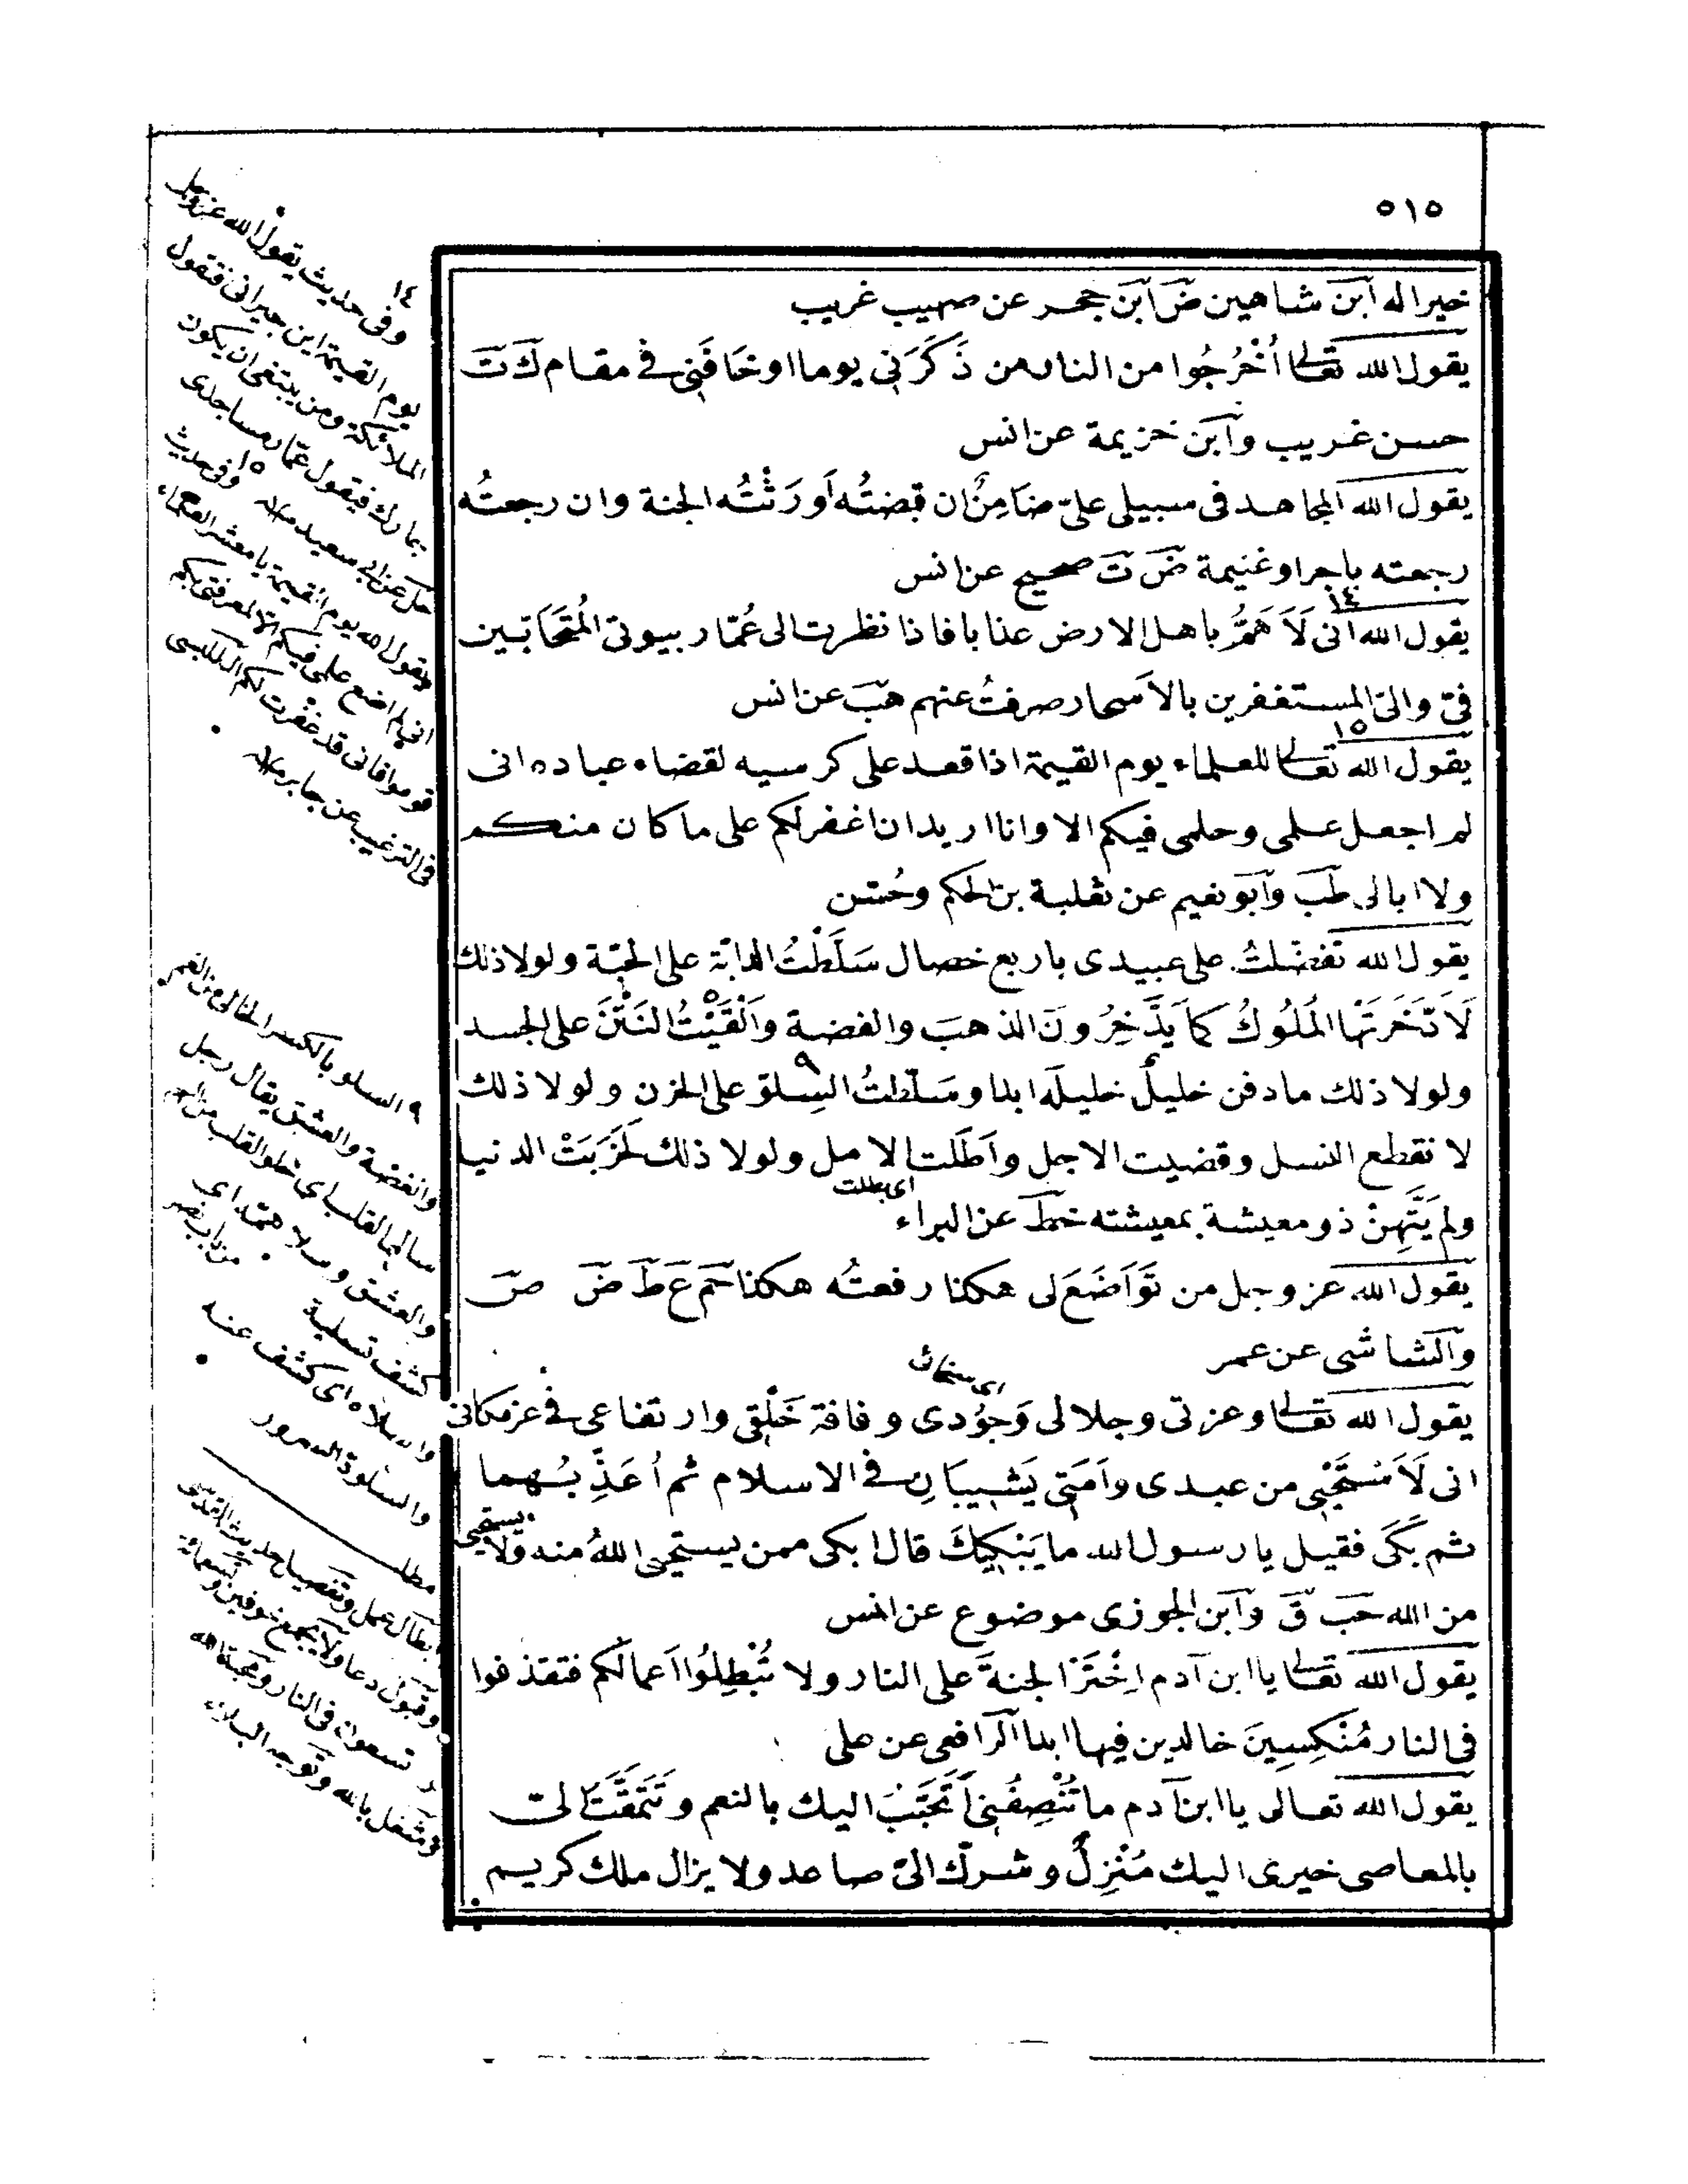 ٥١٥
خيرا له ابن شاهين ض ابن حجر عن صهيب غريب
يقول الله تعالى اُخْرُجُوا من النار من ذَكَرَنِى يوما او خَافَنِى فى مقام ك ت
حسن غريب وابن خزيمة عن انس
يقول الله المجاهد فى سبيلى علىّ ضَامِنٌ ان قبضتُه اَورَثْتُه الجنة وان رجعتُه
رجعته باجر او غنيمة ض ت صحيح عن انس
يقول الله انى لَاَهَمُّ باهل الارض عذابا فاذا نظرت الى عُمّار بيوتى المُتَحَابّين
فىّ والىّ المستغفرين بالاَسحار صرفتُ عنهم هب عن انس
يقول الله تعالى للعلماء يوم القيمة اذا قعد على كرسيه لقضاء عباده انى
لم اجعل علمى وحلمى فيكم الا وانا اريد ان اغفر لكم على ما كان منكم
ولا ابالى طب وابو نعيم عن ثعلبة بن الحكم وحُسّن
يقول الله تفضلتُ على عبيدى باربع خصال سَلَّطْتُ الدابّة على الحَبّة ولولا ذلك
لَادّخَرَتْها المُلُوكُ كما يَدَّخِرُونَ الذهبَ والفضة واَلْقَيْتُ النَتْنَ على الجسد
ولولا ذلك ما دفن خليلٌ خليلَه ابدا وسَلّطتُ السِلوَ على الحزن ولولا ذلك
لانقطع النسل وقضيت الاجل واَطَلت الامل ولولا ذلك لَخَرَبَتْ الدنيا
ولم يَتَّهِنْ ذو معيشة بمعيشته خط عن البراء
يقول الله عز وجل من تَوَاضَعَ لى هكذا رفعتُه هكذا حم ع ط ض ص
والشاشى عن عمر
يقول الله تعالى وعزتى وجلالى وَجُودى وفاقة خَلْقِى وارتفاعى فى عز مكانى
انى لَاَسْتَحْيِى من عبدى واَمَتِى يَشِيبَانِ فى الاسلام ثم اُعَذِّبُهما
ثم بَكَى فقيل يا رسول الله ما يُبْكِيكَ قال ابكى ممن يستحيى اللهُ منه ولا يستحيى
من الله حب ق وابن الجوزى موضوع عن انس
يقول الله تعالى يا ابن آدم اِخْتَرْ الجنةَ على النار ولا تُبْطِلُوا اَعمالكم فتقذفوا
فى النار مُنْكَسِينَ خالدين فيها ابدا الرافعى عن على
يقول الله تعالى يا ابن آدم ما تُنْصِفُنِى اَتَحَبَّبُ اليك بالنعم وتَتَمَقَّتَ الىّ
بالمعاصى خيرى اليك مُنْزِلٌ وشرك الىّ صاعد ولا يزال ملك كريم
١٤
وفى حديث يقول الله عز وجل
يوم القيمة اين جيرانى فتقول
الملائكة ومن ينبغى ان يكون
جارك فيقول عمّار مساجدى
حل عن ابى سعيد ١٥ وفى حديث
يقول الله يوم القيمة يا معشر العلماء
انى لم اضع علمى فيكم الا لمعرفتى بكم
قوموا فانى قد غفرت لكم
فى الترغيب عن جابر
٩ السلو بالكسر الخالى من الغم
والغضة والعشق يقال رجل
سالم القلب اى خلو القلب من
والعشق وسلا همّه اى
كشف تسلية من باب نصر
واسلاه اى كشف عنه
والسلوة السرور
مطلب
ابطال عمل
وقبول دعا ولا يجمع خوفين
تسعون فى النار ومحبة الله
وشغل بالله وتوجه البلاء